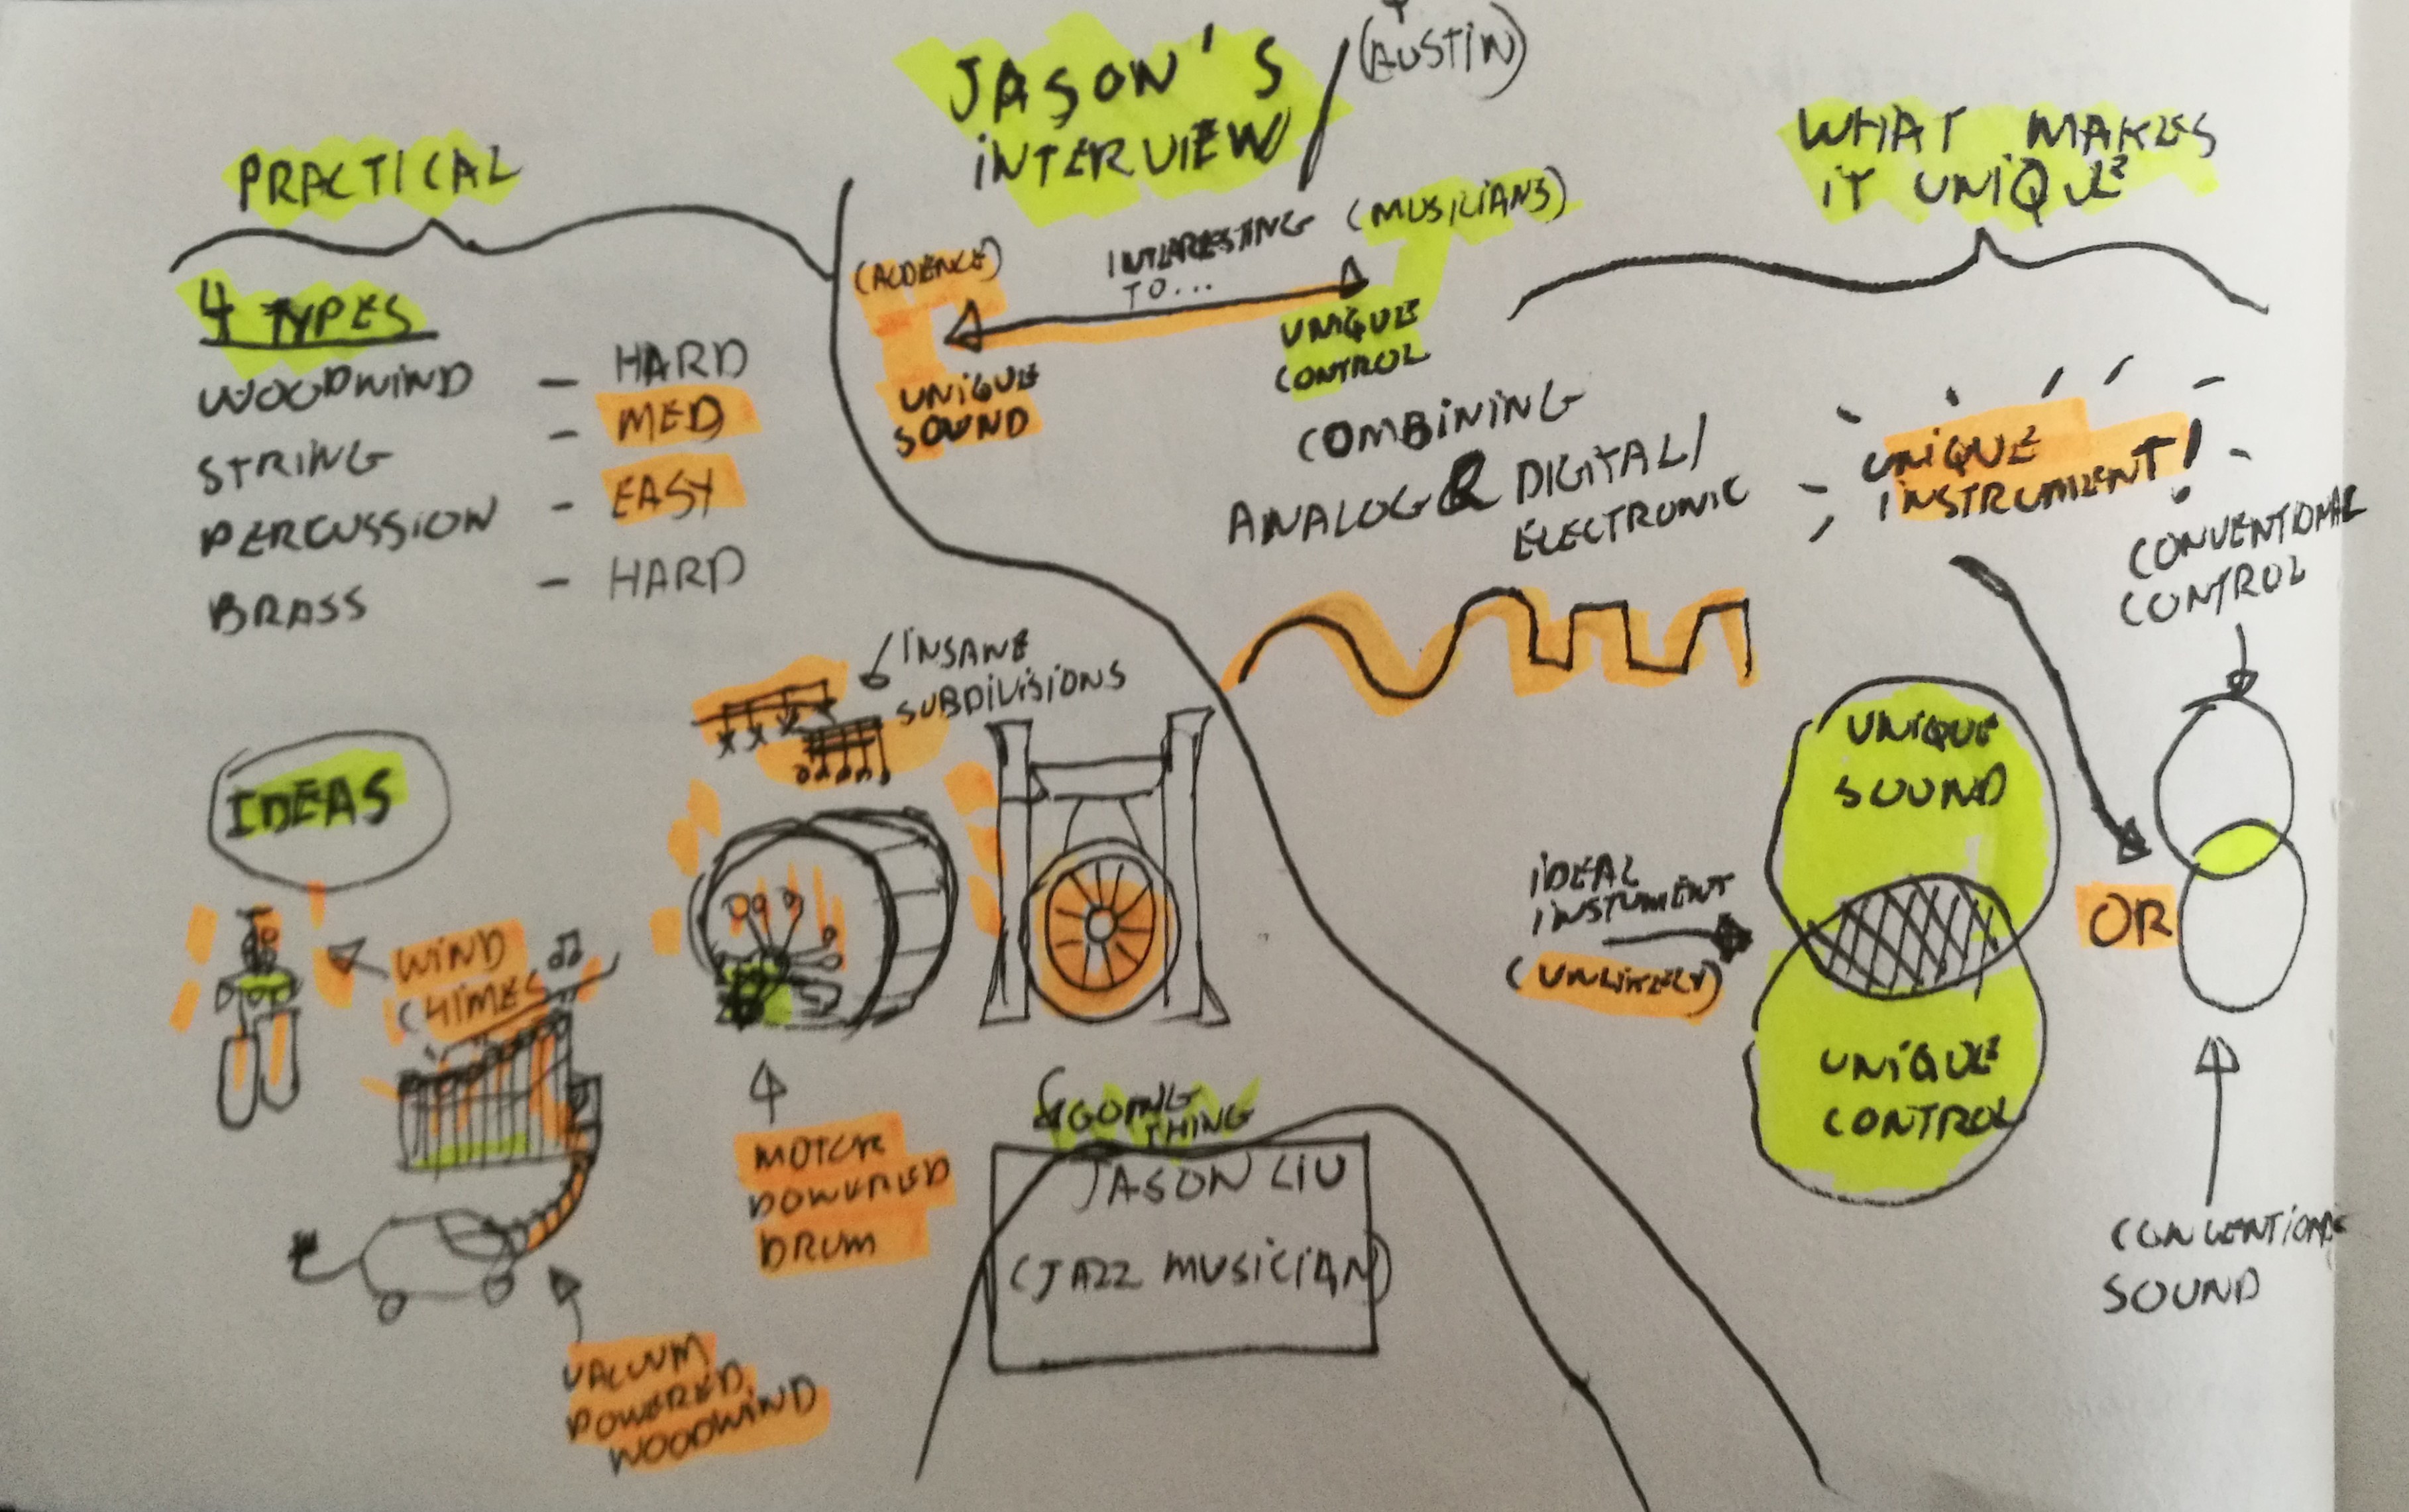 JASON'S
INTERVIEW
(AUSTIN)
PRACTICAL
4 TYPES
WOODWIND - HARD
STRING - MED
PERCUSSION - EASY
BRASS - HARD
(AUDIENCE)
INTERESTING
TO...
(MUSICIANS)
UNIQUE
SOUND
UNIQUE
CONTROL
COMBINING
ANALOG & DIGITAL/
ELECTRONIC
WHAT MAKES
IT UNIQUE
UNIQUE
INSTRUMENT!
CONVENTIONAL
CONTROL
UNIQUE
SOUND
IDEAL
INSTUMENT
(UNLIKELY)
OR
UNIQUE
CONTROL
CONVENTIONAL
SOUND
INSANE
SUBDIVISIONS
IDEAS
WIND
CHIMES
MOTOR
POWERED
DRUM
VACUUM
POWERED
WOODWIND
GOING
THING
JASON LIU
(JAZZ MUSICIAN)